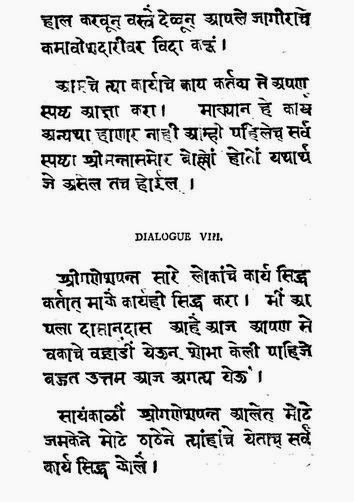 हाल करवून वस्त्रे देव्वून आपले जागीराचे
कमावीशदारीवर विदा करूं।
आमचे त्या कार्याचे काय कर्तव्य ते आपण
स्पष्ट आज्ञा करा। माझ्यान हे कार्य
अन्यथा होणार नाही आम्ही पहिलेच सर्व
स्पष्ट श्रीमन्तासमोर बोल्लों होतों यथार्थ
जे असेल तच होईल।
DIALOGUE VIII.
श्रीगणेशपन्त सारे लोकांचे कार्य सिद्ध
कर्तात माझें कार्यही सिद्ध करा। मीं आ
पला दासानदास आहें आज आपण से
वकाचे वहाडीं येऊन शोभा केली पाहिजे
बहुत उत्तम आज अगत्य येऊं।
सायंकाळीं श्रीगणेशपन्त आलेत मोटे
जमकेने मोटे ठाठेने त्यांहांचे येताच सर्व
कार्य सिद्ध झोलें।